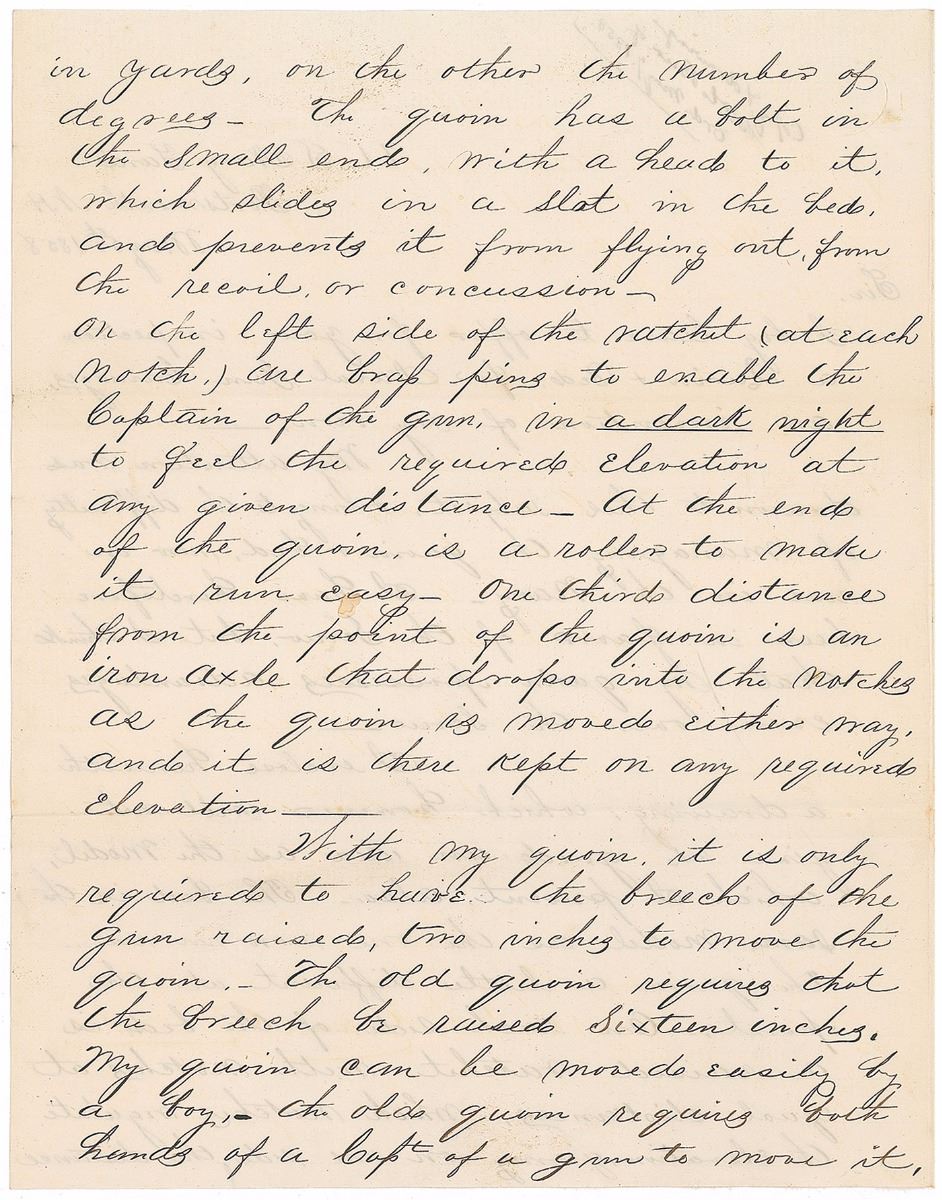 in yards, on the other the number of
degrees — The quoin has a bolt in
the small end, with a head to it,
which slides in a slot in the bed,
and prevents it from flying out, from
the recoil, or concussion —
On the left side of the ratchet (at each
Notch,) are brass pins to enable the
Captain of the gun, in a dark night
to feel the required Elevation at
any given distance — At the end
of the quoin, is a roller to make
it run easy — One third distance
from the point of the quoin is an
iron axle that drops into the notches
as the quoin is moved either way,
and it is there kept on any required
Elevation —
With my quoin, it is only
required to have the breech of the
gun raised, two inches to move the
quoin. — The old quoin requires that
the breech be raised Sixteen inches.
My quoin can be moved easily by
a boy, — the old quoin requires both
hands of a Capt of a gun to move it,